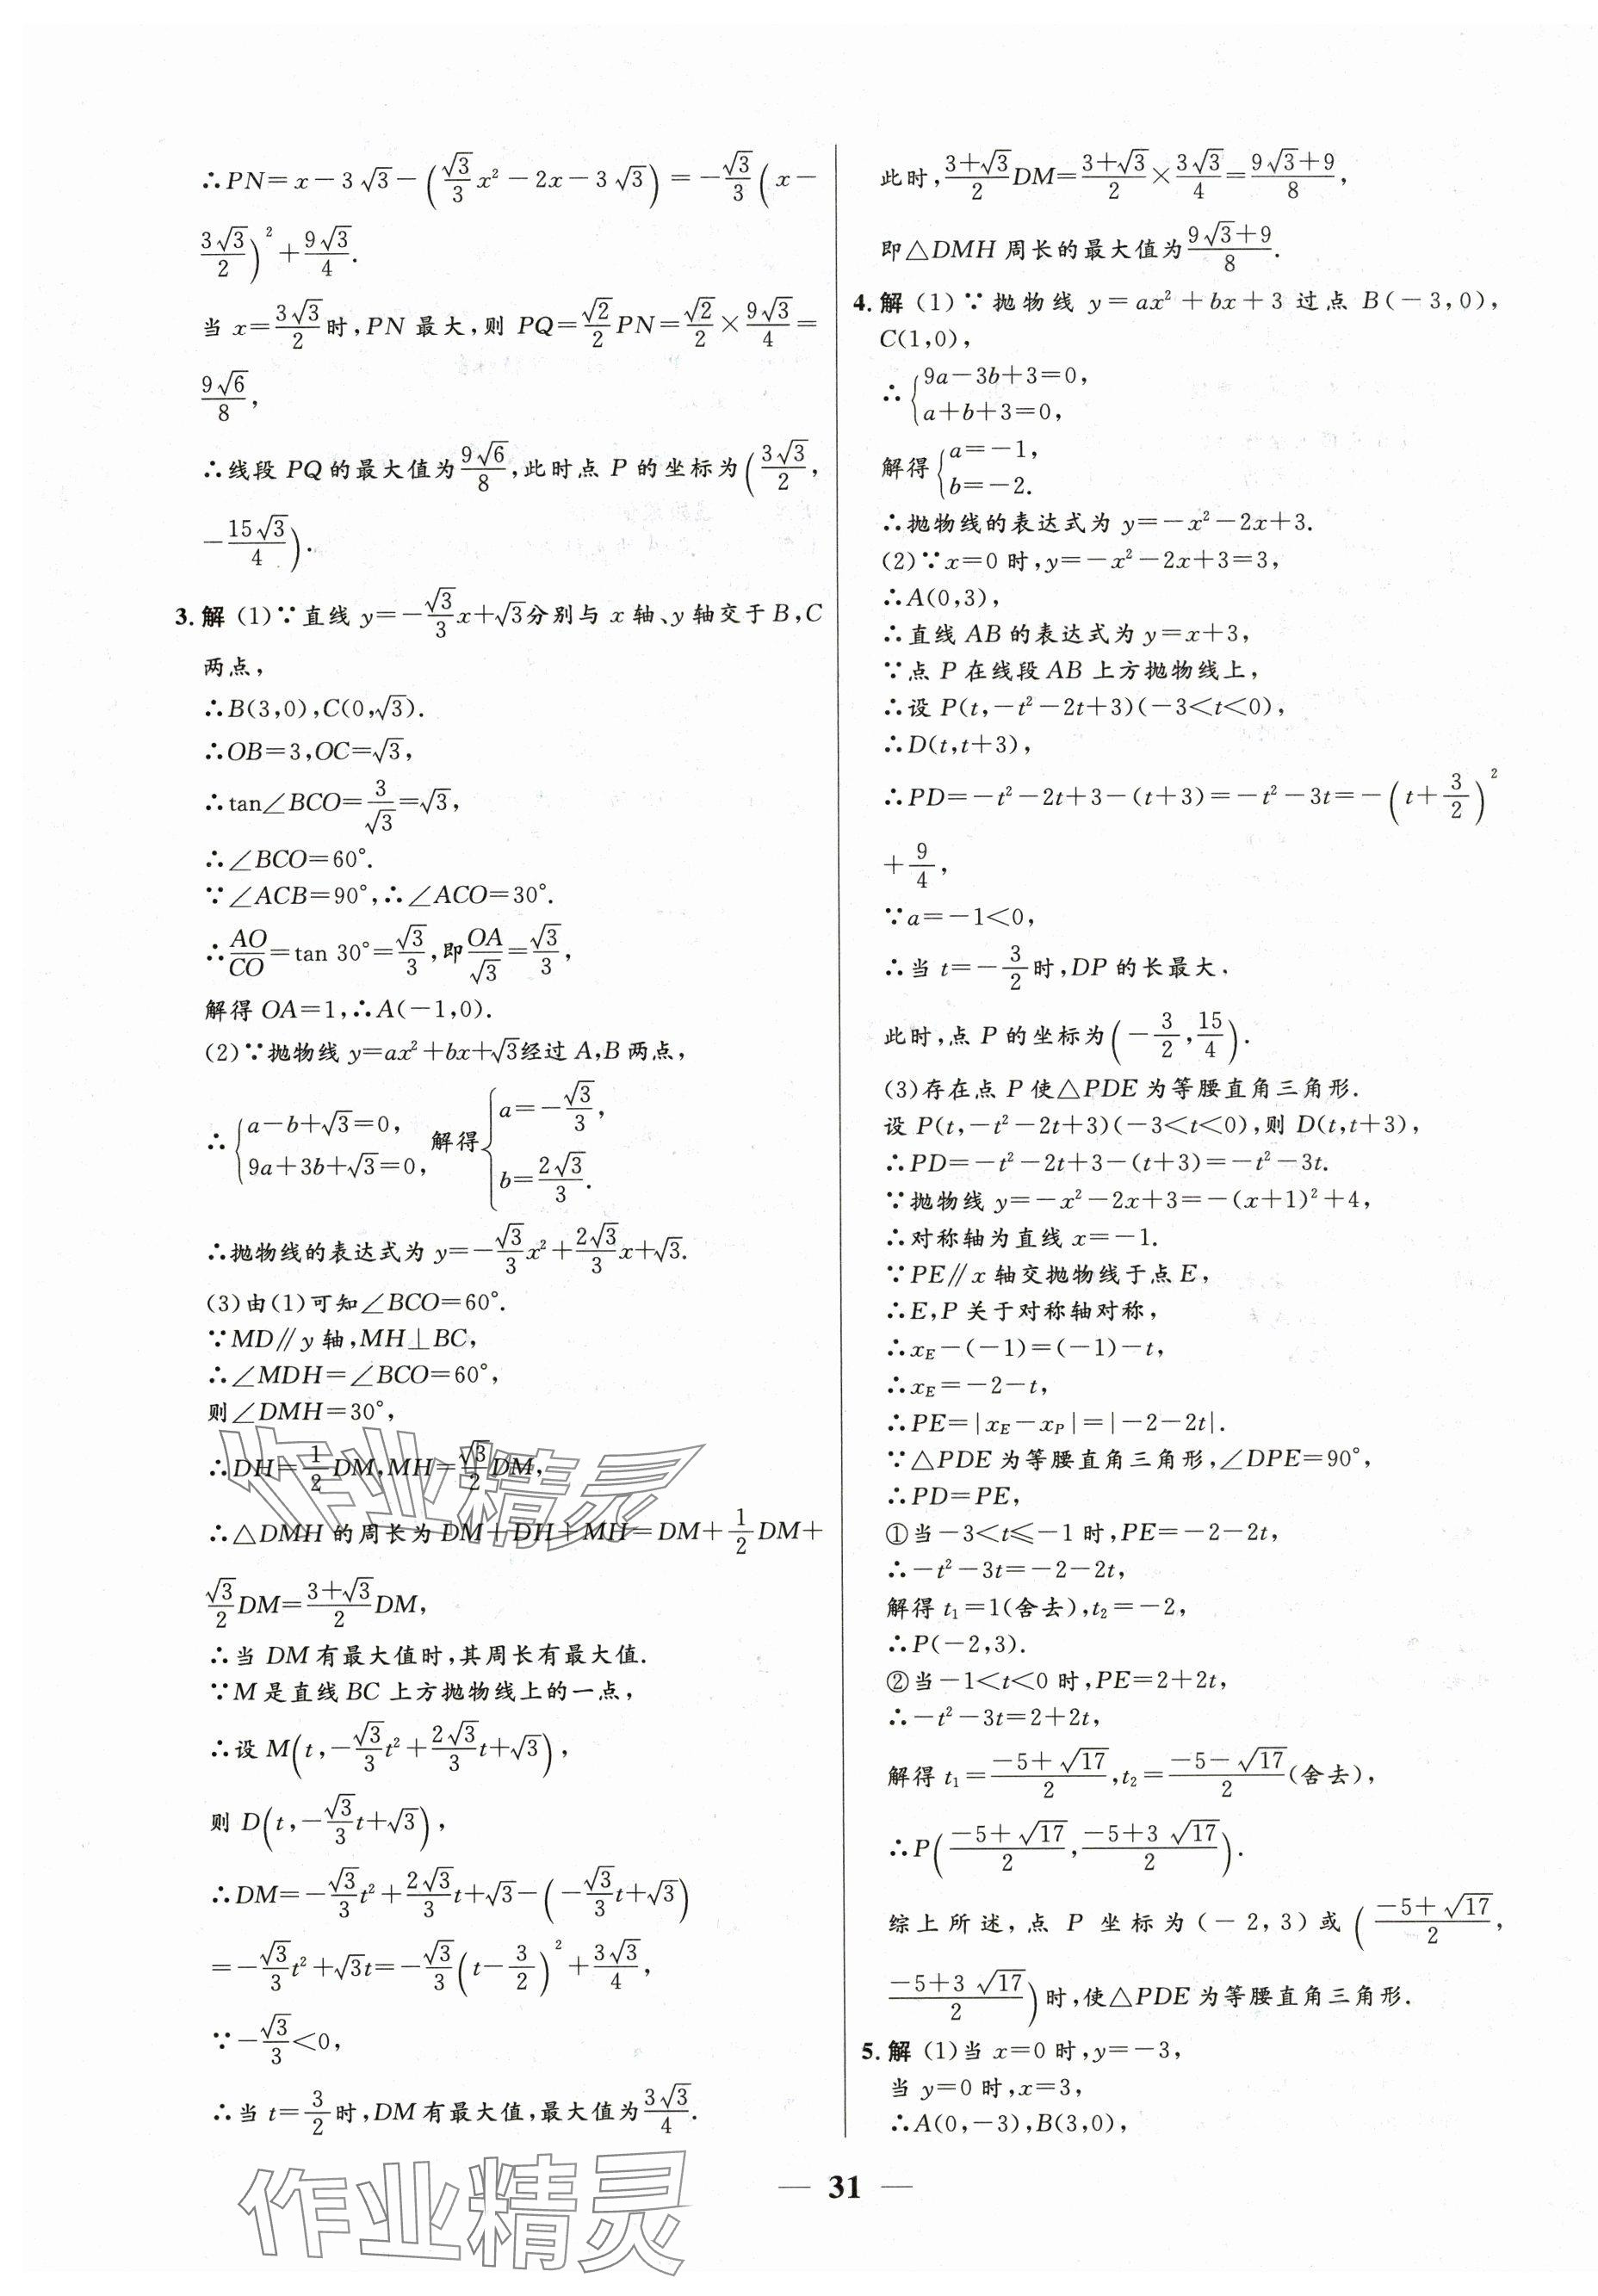 ∴PN=x-3√3-(√3/3 x²-2x-3√3)=-√3/3(x-
3√3/2)²+9√3/4.
当 x=3√3/2时,PN 最大,则 PQ=√2/2 PN=√2/2×9√3/4=
9√6/8,
∴线段 PQ 的最大值为9√6/8,此时点 P 的坐标为(3√3/2,
-15√3/4).
3.解 (1)∵直线 y=-√3/3 x+√3分别与 x 轴、y 轴交于 B,C
两点,
∴B(3,0),C(0,√3).
∴OB=3,OC=√3,
∴tan∠BCO=3/√3=√3,
∴∠BCO=60°.
∵∠ACB=90°,∴∠ACO=30°.
∴AO/CO=tan 30°=√3/3,即OA/√3=√3/3,
解得 OA=1,∴A(-1,0).
(2)∵抛物线 y=ax²+bx+√3经过 A,B 两点,
∴{a-b+√3=0, 9a+3b+√3=0, 解得{a=-√3/3, b=2√3/3.
∴抛物线的表达式为 y=-√3/3 x²+2√3/3 x+√3.
(3)由(1)可知∠BCO=60°.
∵MD∥y 轴,MH⊥BC,
∴∠MDH=∠BCO=60°,
则∠DMH=30°,
∴DH=1/2 DM,MH=√3/2 DM,
∴△DMH 的周长为 DM+DH+MH=DM+1/2 DM+
√3/2 DM=3+√3/2 DM,
∴当 DM 有最大值时,其周长有最大值.
∵M 是直线 BC 上方抛物线上的一点,
∴设 M(t,-√3/3 t²+2√3/3 t+√3),
则 D(t,-√3/3 t+√3),
∴DM=-√3/3 t²+2√3/3 t+√3-(-√3/3 t+√3)
=-√3/3 t²+√3t=-√3/3(t-3/2)²+3√3/4,
∵-√3/3<0,
∴当 t=3/2时,DM 有最大值,最大值为3√3/4.
此时,3+√3/2 DM=3+√3/2×3√3/4=9√3+9/8,
即△DMH 周长的最大值为9√3+9/8.
4.解 (1)∵抛物线 y=ax²+bx+3 过点 B(-3,0),
C(1,0),
∴{9a-3b+3=0,
a+b+3=0,
解得{a=-1,
b=-2.
∴抛物线的表达式为 y=-x²-2x+3.
(2)∵x=0 时,y=-x²-2x+3=3,
∴A(0,3),
∴直线 AB 的表达式为 y=x+3,
∵点 P 在线段 AB 上方抛物线上,
∴设 P(t,-t²-2t+3)(-3<t<0),
∴D(t,t+3),
∴PD=-t²-2t+3-(t+3)=-t²-3t=-(t+3/2)²
+9/4,
∵a=-1<0,
∴当 t=-3/2时,DP 的长最大.
此时,点 P 的坐标为(-3/2,15/4).
(3)存在点 P 使△PDE 为等腰直角三角形.
设 P(t,-t²-2t+3)(-3<t<0),则 D(t,t+3),
∴PD=-t²-2t+3-(t+3)=-t²-3t.
∵抛物线 y=-x²-2x+3=-(x+1)²+4,
∴对称轴为直线 x=-1.
∵PE∥x 轴交抛物线于点 E,
∴E,P 关于对称轴对称,
∴x_E-(-1)=(-1)-t,
∴x_E=-2-t,
∴PE=|x_E-x_P|=|-2-2t|.
∵△PDE 为等腰直角三角形,∠DPE=90°,
∴PD=PE,
①当-3<t≤-1 时,PE=-2-2t,
∴-t²-3t=-2-2t,
解得 t₁=1(舍去),t₂=-2,
∴P(-2,3).
②当-1<t<0 时,PE=2+2t,
∴-t²-3t=2+2t,
解得 t₁=-5+√17/2,t₂=-5-√17/2(舍去),
∴P(-5+√17/2,-5+3√17/2).
综上所述,点 P 坐标为(-2,3)或(-5+√17/2,
-5+3√17/2)时,使△PDE 为等腰直角三角形.
5.解 (1)当 x=0 时,y=-3,
当 y=0 时,x=3,
∴A(0,-3),B(3,0),
— 31 —
作业精灵
作业精灵